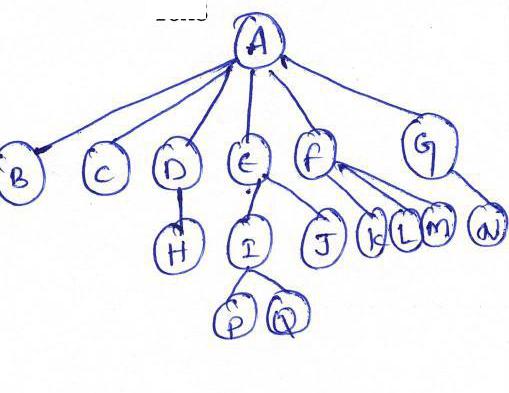 A
B C D E F G
H I J K L M N
P Q